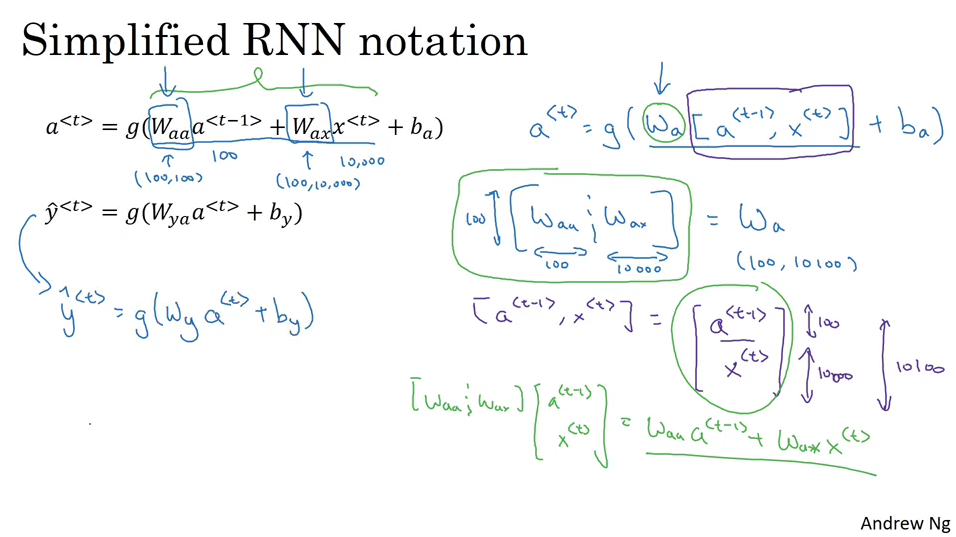 Simplified RNN notation
a^{<t>} = g(W_{aa}a^{<t−1>} + W_{ax}x^{<t>} + b_a)
100
10,000
(100,100)
(100,10,000)
ŷ^{<t>} = g(W_{ya}a^{<t>} + b_y)
ŷ^{<t>} = g(W_y a^{<t>} + b_y)
a^{<t>} = g(W_a [a^{<t-1>}, x^{<t>}] + b_a)
100 [W_{aa} ; W_{ax}] = W_a
100
10000
(100, 10100)
[a^{<t-1>}, x^{<t>}] = [a^{<t-1>} x^{<t>}]
100
10000
10100
[W_{aa} ; W_{ax}] [a^{<t-1>} x^{<t>}] = W_{aa} a^{<t-1>} + W_{ax} x^{<t>}
Andrew Ng